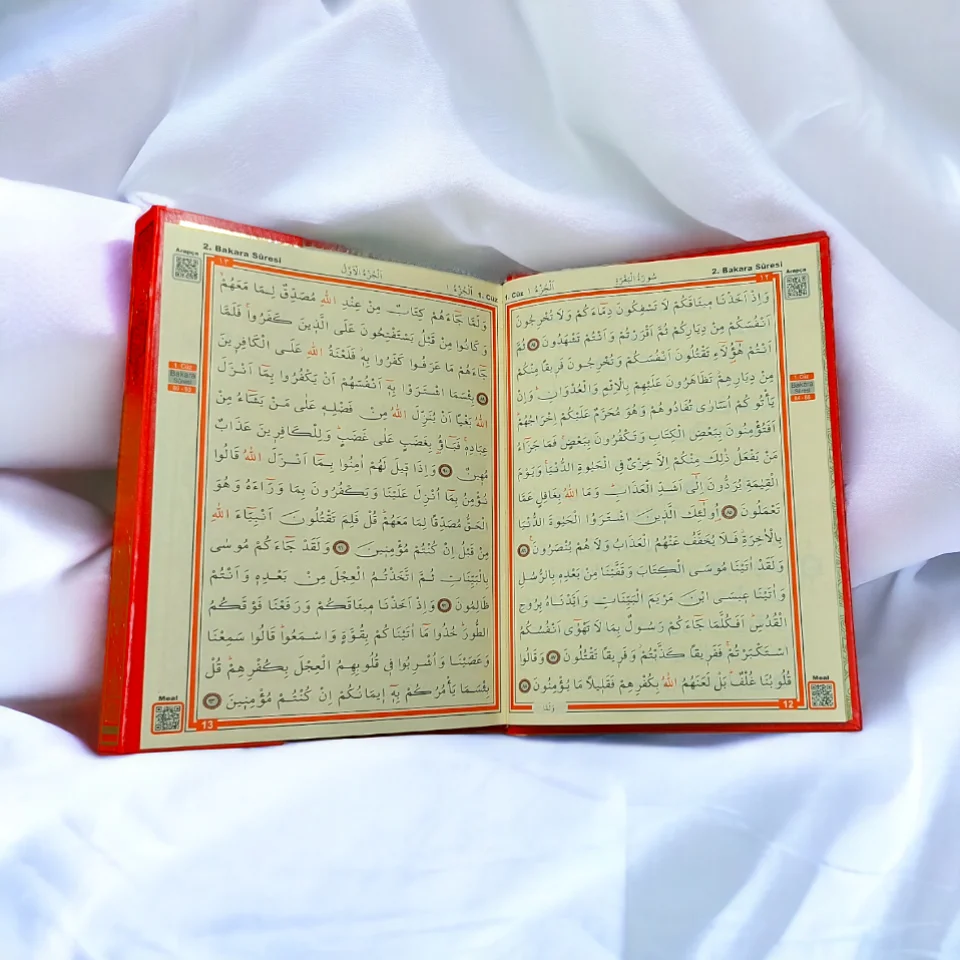 2. Bakara Sûresi
سُورَةُ الْبَقَرَةِ
اَلْجُزْءُ ١
1. Cüz
١٢
Arapça
وَاِذْ اَخَذْنَا مِيثَاقَكُمْ لَا تَسْفِكُونَ دِمَٓاءَكُمْ وَلَا تُخْرِجُونَ
اَنْفُسَكُمْ مِنْ دِيَارِكُمْ ثُمَّ اَقْرَرْتُمْ وَاَنْتُمْ تَشْهَدُونَ ﴿٨٤﴾ ثُمَّ
اَنْتُمْ هٰٓؤُ۬لَٓاءِ تَقْتُلُونَ اَنْفُسَكُمْ وَتُخْرِجُونَ فَرِيقًا مِنْكُمْ
مِنْ دِيَارِهِمْۘ تَظَاهَرُونَ عَلَيْهِمْ بِالْاِثْمِ وَالْعُدْوَانِۜ وَاِنْ
يَأْتُوكُمْ اُسَارٰى تُفَادُوهُمْ وَهُوَ مُحَرَّمٌ عَلَيْكُمْ اِخْرَاجُهُمْۜ
اَفَتُؤْمِنُونَ بِبَعْضِ الْكِتَابِ وَتَكْفُرُونَ بِبَعْضٍۚ فَمَا جَزَٓاءُ
مَنْ يَفْعَلُ ذٰلِكَ مِنْكُمْ اِلَّا خِزْيٌ فِي الْحَيٰوةِ الدُّنْيَاۚ وَيَوْمَ
الْقِيٰمَةِ يُرَدُّونَ اِلٰٓى اَشَدِّ الْعَذَابِۜ وَمَا اللّٰهُ بِغَافِلٍ عَمَّا
تَعْمَلُونَ ﴿٨٥﴾ اُو۬لٰٓئِكَ الَّذِينَ اشْتَرَوُا الْحَيٰوةَ الدُّنْيَا
بِالْاٰخِرَةِۘ فَلَا يُخَفَّفُ عَنْهُمُ الْعَذَابُ وَلَا هُمْ يُنْصَرُونَ۟ ﴿٨٦﴾
وَلَقَدْ اٰتَيْنَا مُوسَى الْكِتَابَ وَقَفَّيْنَا مِنْ بَعْدِه۪ بِالرُّسُلِ
وَاٰتَيْنَا عِيسَى ابْنَ مَرْيَمَ الْبَيِّنَاتِ وَاَيَّدْنَاهُ بِرُوحِ
الْقُدُسِۜ اَفَكُلَّمَا جَٓاءَكُمْ رَسُولٌ بِمَا لَا تَهْوٰٓى اَنْفُسُكُمُ
اسْتَكْبَرْتُمْۚ فَفَرِيقًا كَذَّبْتُمْۘ وَفَرِيقًا تَقْتُلُونَ ﴿٨٧﴾ وَقَالُوا
قُلُوبُنَا غُلْفٌۜ بَلْ لَعَنَهُمُ اللّٰهُ بِكُفْرِهِمْ فَقَلِيلًا مَا يُؤْمِنُونَ ﴿٨٨﴾
1. Cüz
Bakara
Sûresi
84 - 88
Meal
12
وَلَمَّا
2. Bakara Sûresi
اَلْجُزْءُ الْاَوَّلُ
اَلْجُزْءُ ١
1. Cüz
١٣
Arapça
وَلَمَّا جَٓاءَهُمْ كِتَابٌ مِنْ عِنْدِ اللّٰهِ مُصَدِّقٌ لِمَا مَعَهُمْۙ
وَكَانُوا مِنْ قَبْلُ يَسْتَفْتِحُونَ عَلَى الَّذِينَ كَفَرُواۚ فَلَمَّا
جَٓاءَهُمْ مَا عَرَفُوا كَفَرُوا بِه۪ۘ فَلَعْنَةُ اللّٰهِ عَلَى الْكَافِرِينَ
﴿٨٩﴾ بِئْسَمَا اشْتَرَوْا بِه۪ٓ اَنْفُسَهُمْ اَنْ يَكْفُرُوا بِمَٓا اَنْزَلَ
اللّٰهُ بَغْيًا اَنْ يُنَزِّلَ اللّٰهُ مِنْ فَضْلِه۪ عَلٰى مَنْ يَشَٓاءُ مِنْ
عِبَادِه۪ۚ فَبَٓاؤُ۫ بِغَضَبٍ عَلٰى غَضَبٍۜ وَلِلْكَافِرِينَ عَذَابٌ
مُهِينٌ ﴿٩٠﴾ وَاِذَا قِيلَ لَهُمْ اٰمِنُوا بِمَٓا اَنْزَلَ اللّٰهُ قَالُوا
نُؤْمِنُ بِمَٓا اُنْزِلَ عَلَيْنَا وَيَكْفُرُونَ بِمَا وَرَٓاءَهُ وَهُوَ
الْحَقُّ مُصَدِّقًا لِمَا مَعَهُمْۜ قُلْ فَلِمَ تَقْتُلُونَ اَنْبِيَٓاءَ اللّٰهِ
مِنْ قَبْلُ اِنْ كُنْتُمْ مُؤْمِنِينَ ﴿٩١﴾ وَلَقَدْ جَٓاءَكُمْ مُوسٰى
بِالْبَيِّنَاتِ ثُمَّ اتَّخَذْتُمُ الْعِجْلَ مِنْ بَعْدِه۪ وَاَنْتُمْ
ظَالِمُونَ ﴿٩٢﴾ وَاِذْ اَخَذْنَا مِيثَاقَكُمْ وَرَفَعْنَا فَوْقَكُمُ
الطُّورَۜ خُذُوا مَٓا اٰتَيْنَاكُمْ بِقُوَّةٍ وَاسْمَعُواۜ قَالُوا سَمِعْنَا
وَعَصَيْنَا وَاُشْرِبُوا فِي قُلُوبِهِمُ الْعِجْلَ بِكُفْرِهِمْۜ قُلْ
بِئْسَمَا يَأْمُرُكُمْ بِه۪ٓ اِيمَانُكُمْ اِنْ كُنْتُمْ مُؤْمِنِينَ ﴿٩٣﴾
1. Cüz
Bakara
Sûresi
89 - 93
Meal
13